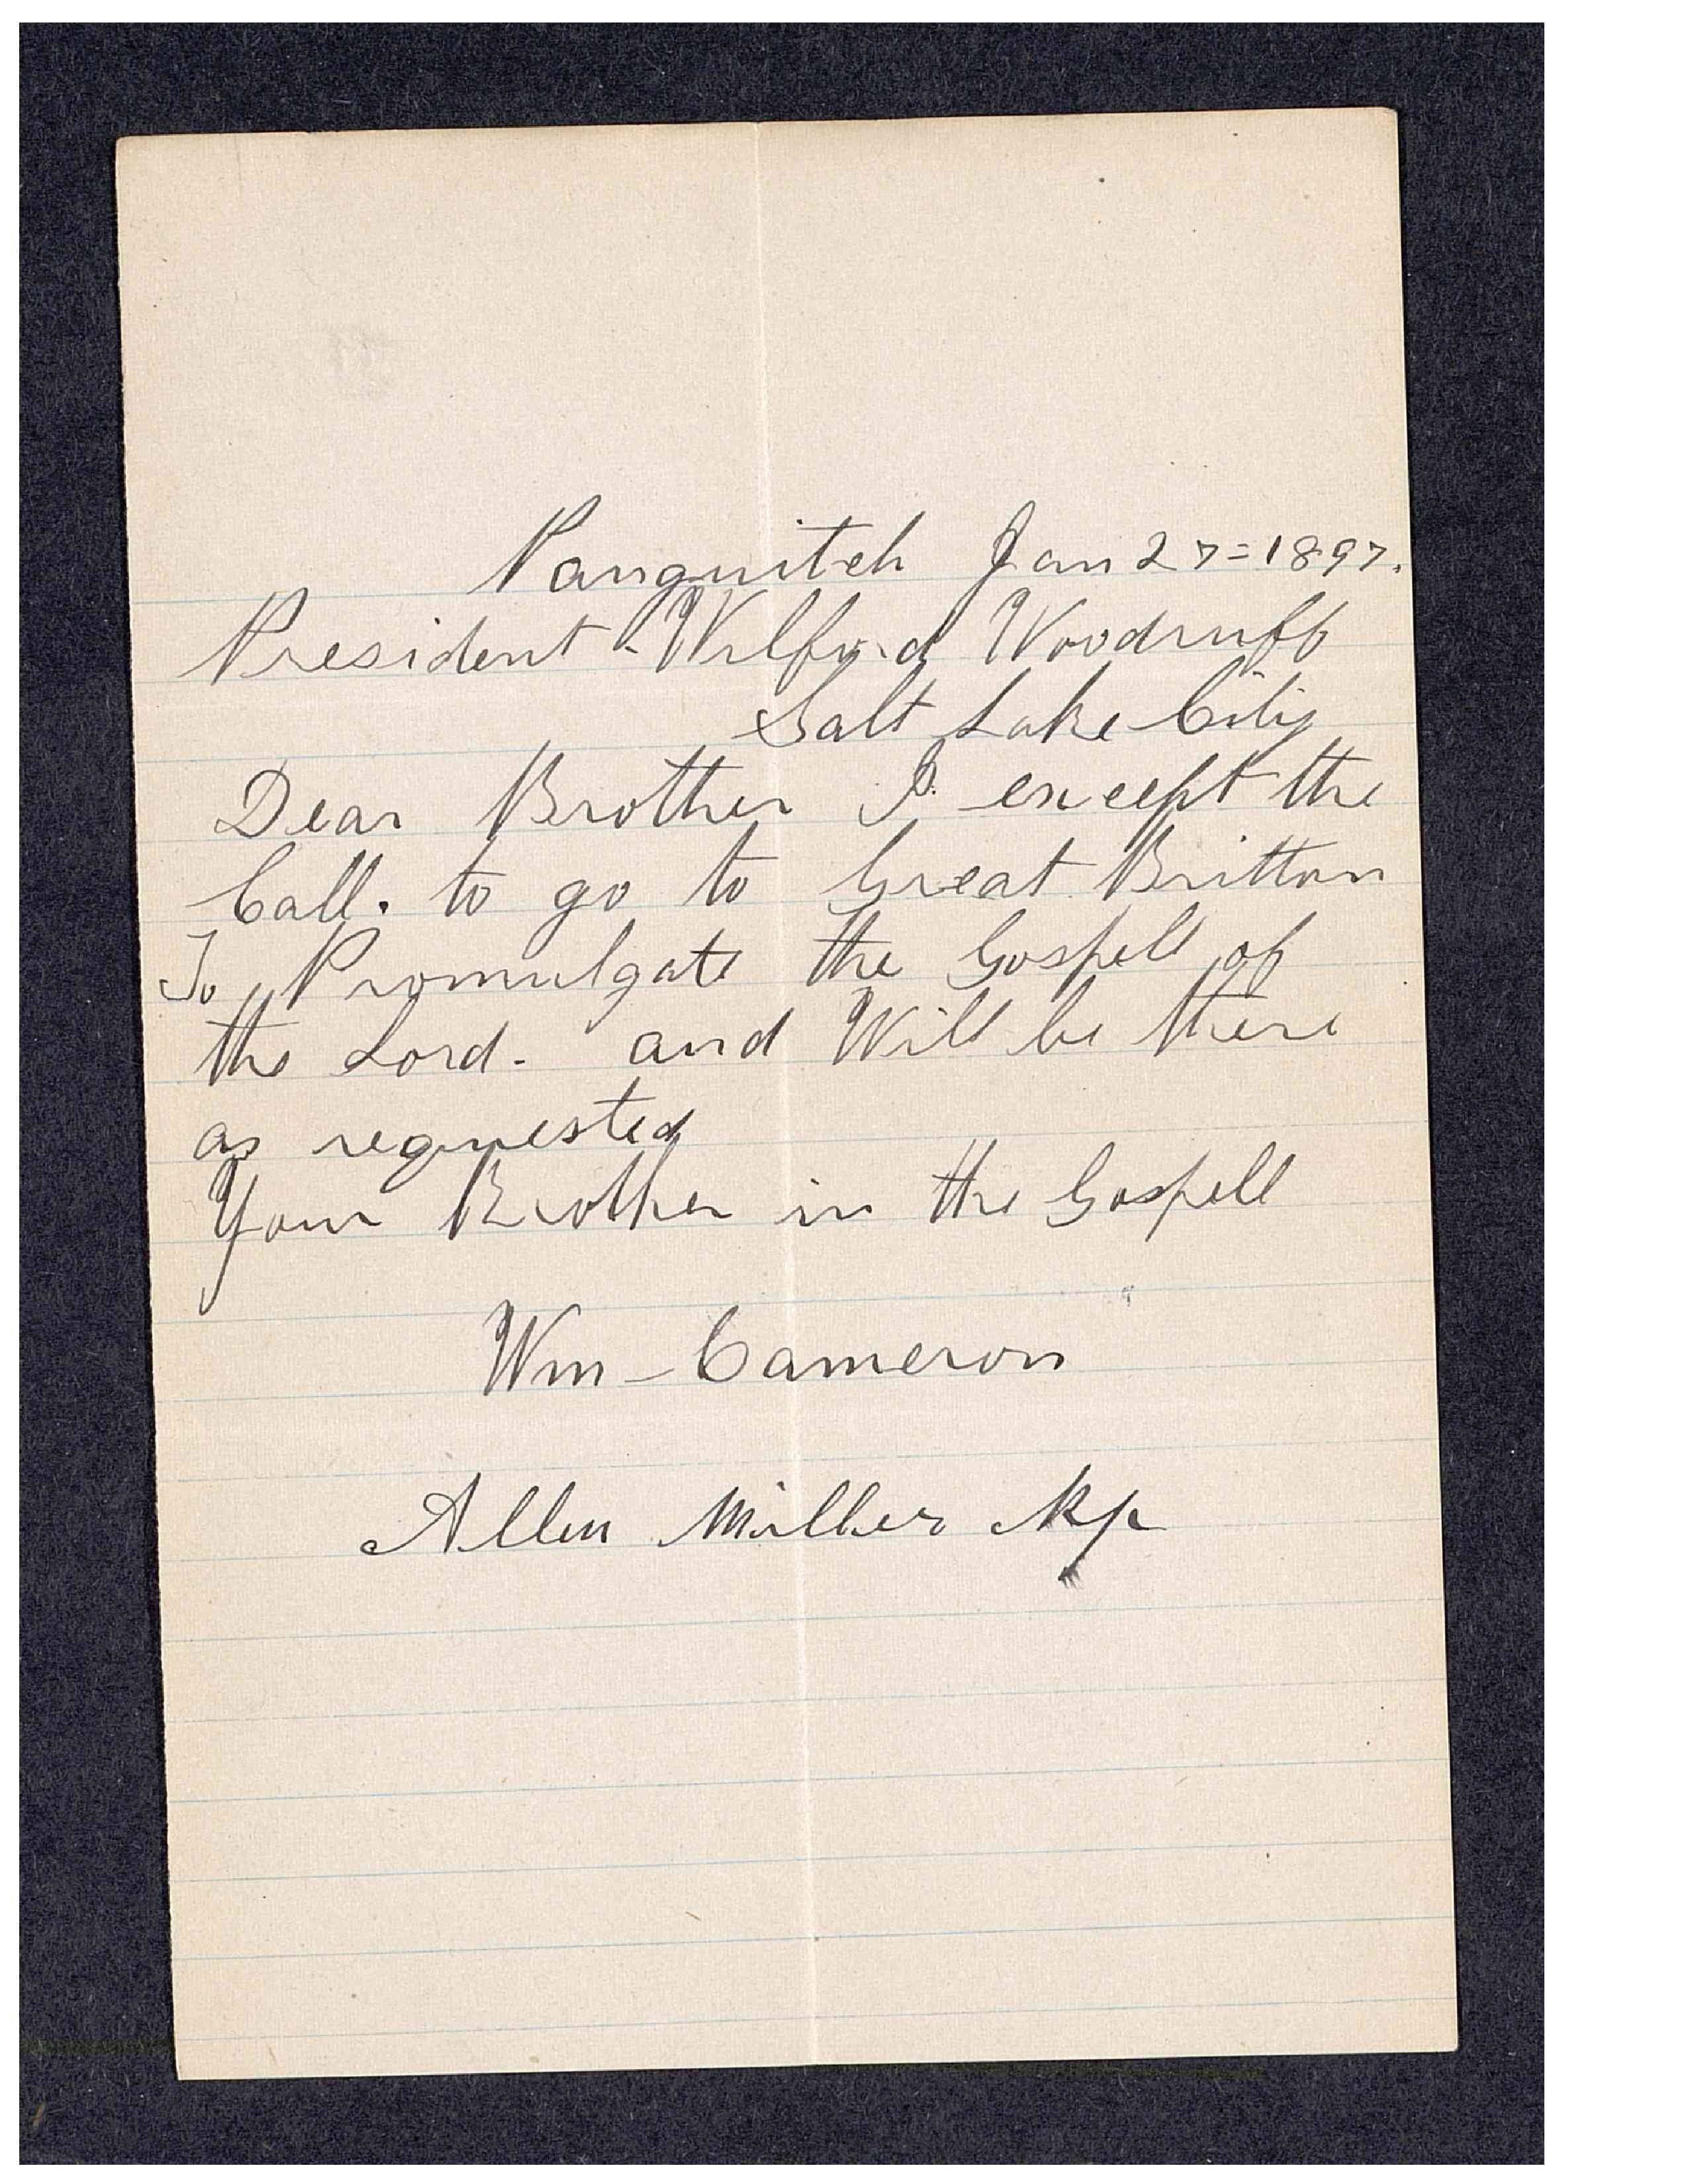 Panguitch Jan 27=1897.
President. Wilford Woodruff
Salt Lake City
Dear Brother I. except the
Call. to go to Great Brittan
To Promulgate the Gospell of
the Lord. and Will be there
as requested
Your Brother in the Gospell
Wm Cameron
Allen Miller